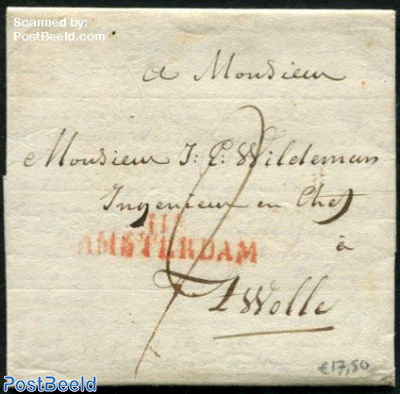 Scanned by:
PostBeeld.com
a Monsieur
Monsieur J: P. Wildeman
Ingenieur en Chef
118
AMSTERDAM
à
Zwolle
€17,50
PostBeeld